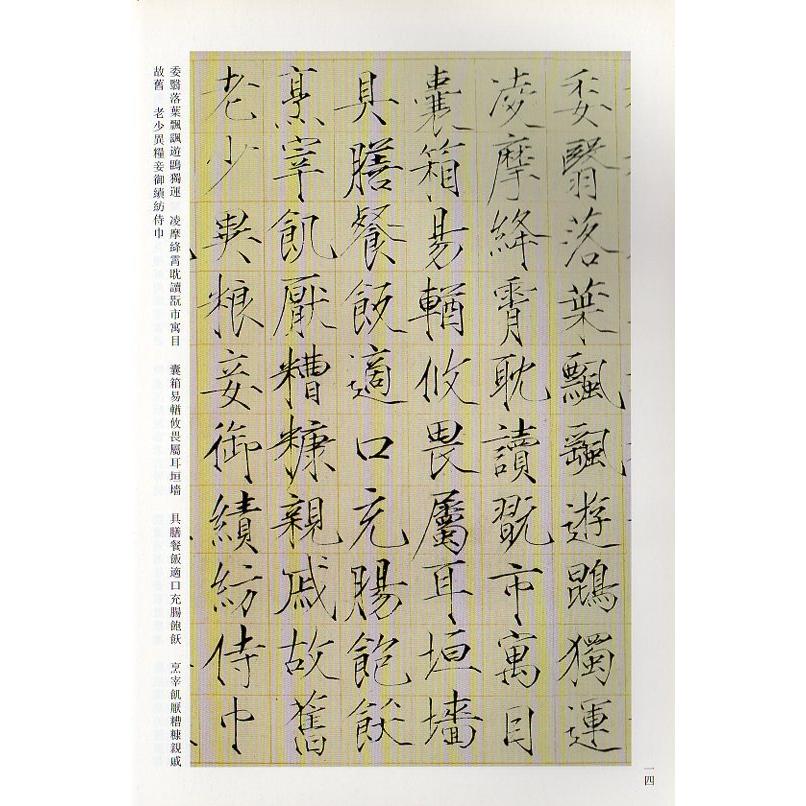 委翳落葉飄颻遊鵾獨運
凌摩絳霄耽讀翫市寓目
囊箱易輶攸畏屬耳垣墻
具膳餐飯適口充腸飽飫
烹宰飢厭糟糠親戚故舊
老少異粮妾御績紡侍巾
委翳落葉飄颻遊鵾獨運　凌摩絳霄耽讀翫市寓目　囊箱易輶攸畏屬耳垣墻　具膳餐飯適口充腸飽飫　烹宰飢厭糟糠親戚
故舊　老少異糧妾御績紡侍巾
一四